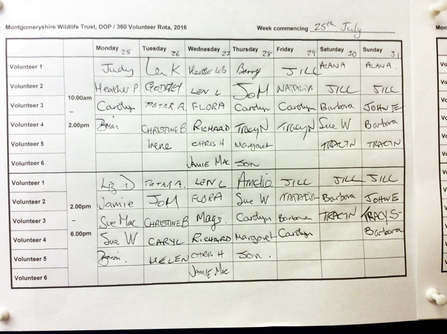 Montgomeryshire Wildlife Trust, DOP / 360 Volunteer Rota, 2016 Week commencing 25th July
Monday 25 Tuesday 26 Wednesday 27 Thursday 28 Friday 29 Saturday 30 Sunday 31
Volunteer 1 Judy Len K Barry JILL ALANA ALANA
Volunteer 2 Heather P GODFREY LEN L JOM NATALIA JILL JILL
10.00am
Volunteer 3 Carolyn PETER A. FLORA Carolyn Carolyn Barbara JOHN E
–
Volunteer 4 2.00pm Brian CHRISTINE B RICHARD TRACYN TRACYN Sue W Barbara
Volunteer 5 Irene CHRIS H Margaret TRACYN TRACYN
Volunteer 6 JAMIE MAC JON
Volunteer 1 Liz D PETER A. LEN L Amelio JILL JILL JILL
Volunteer 2 2.00pm Jamie JOM FLORA Sue W NATALIA Barbara JOHN E
Volunteer 3 – Sue Mac CHRISTINE B Mags Carolyn Barbara TRACYN
Volunteer 4 6.00pm Sue W CARYL RICHARD Margaret Carolyn Barbara
Volunteer 5 Brian. HELEN CHRIS H Jon.
Volunteer 6 JAMIE MAC